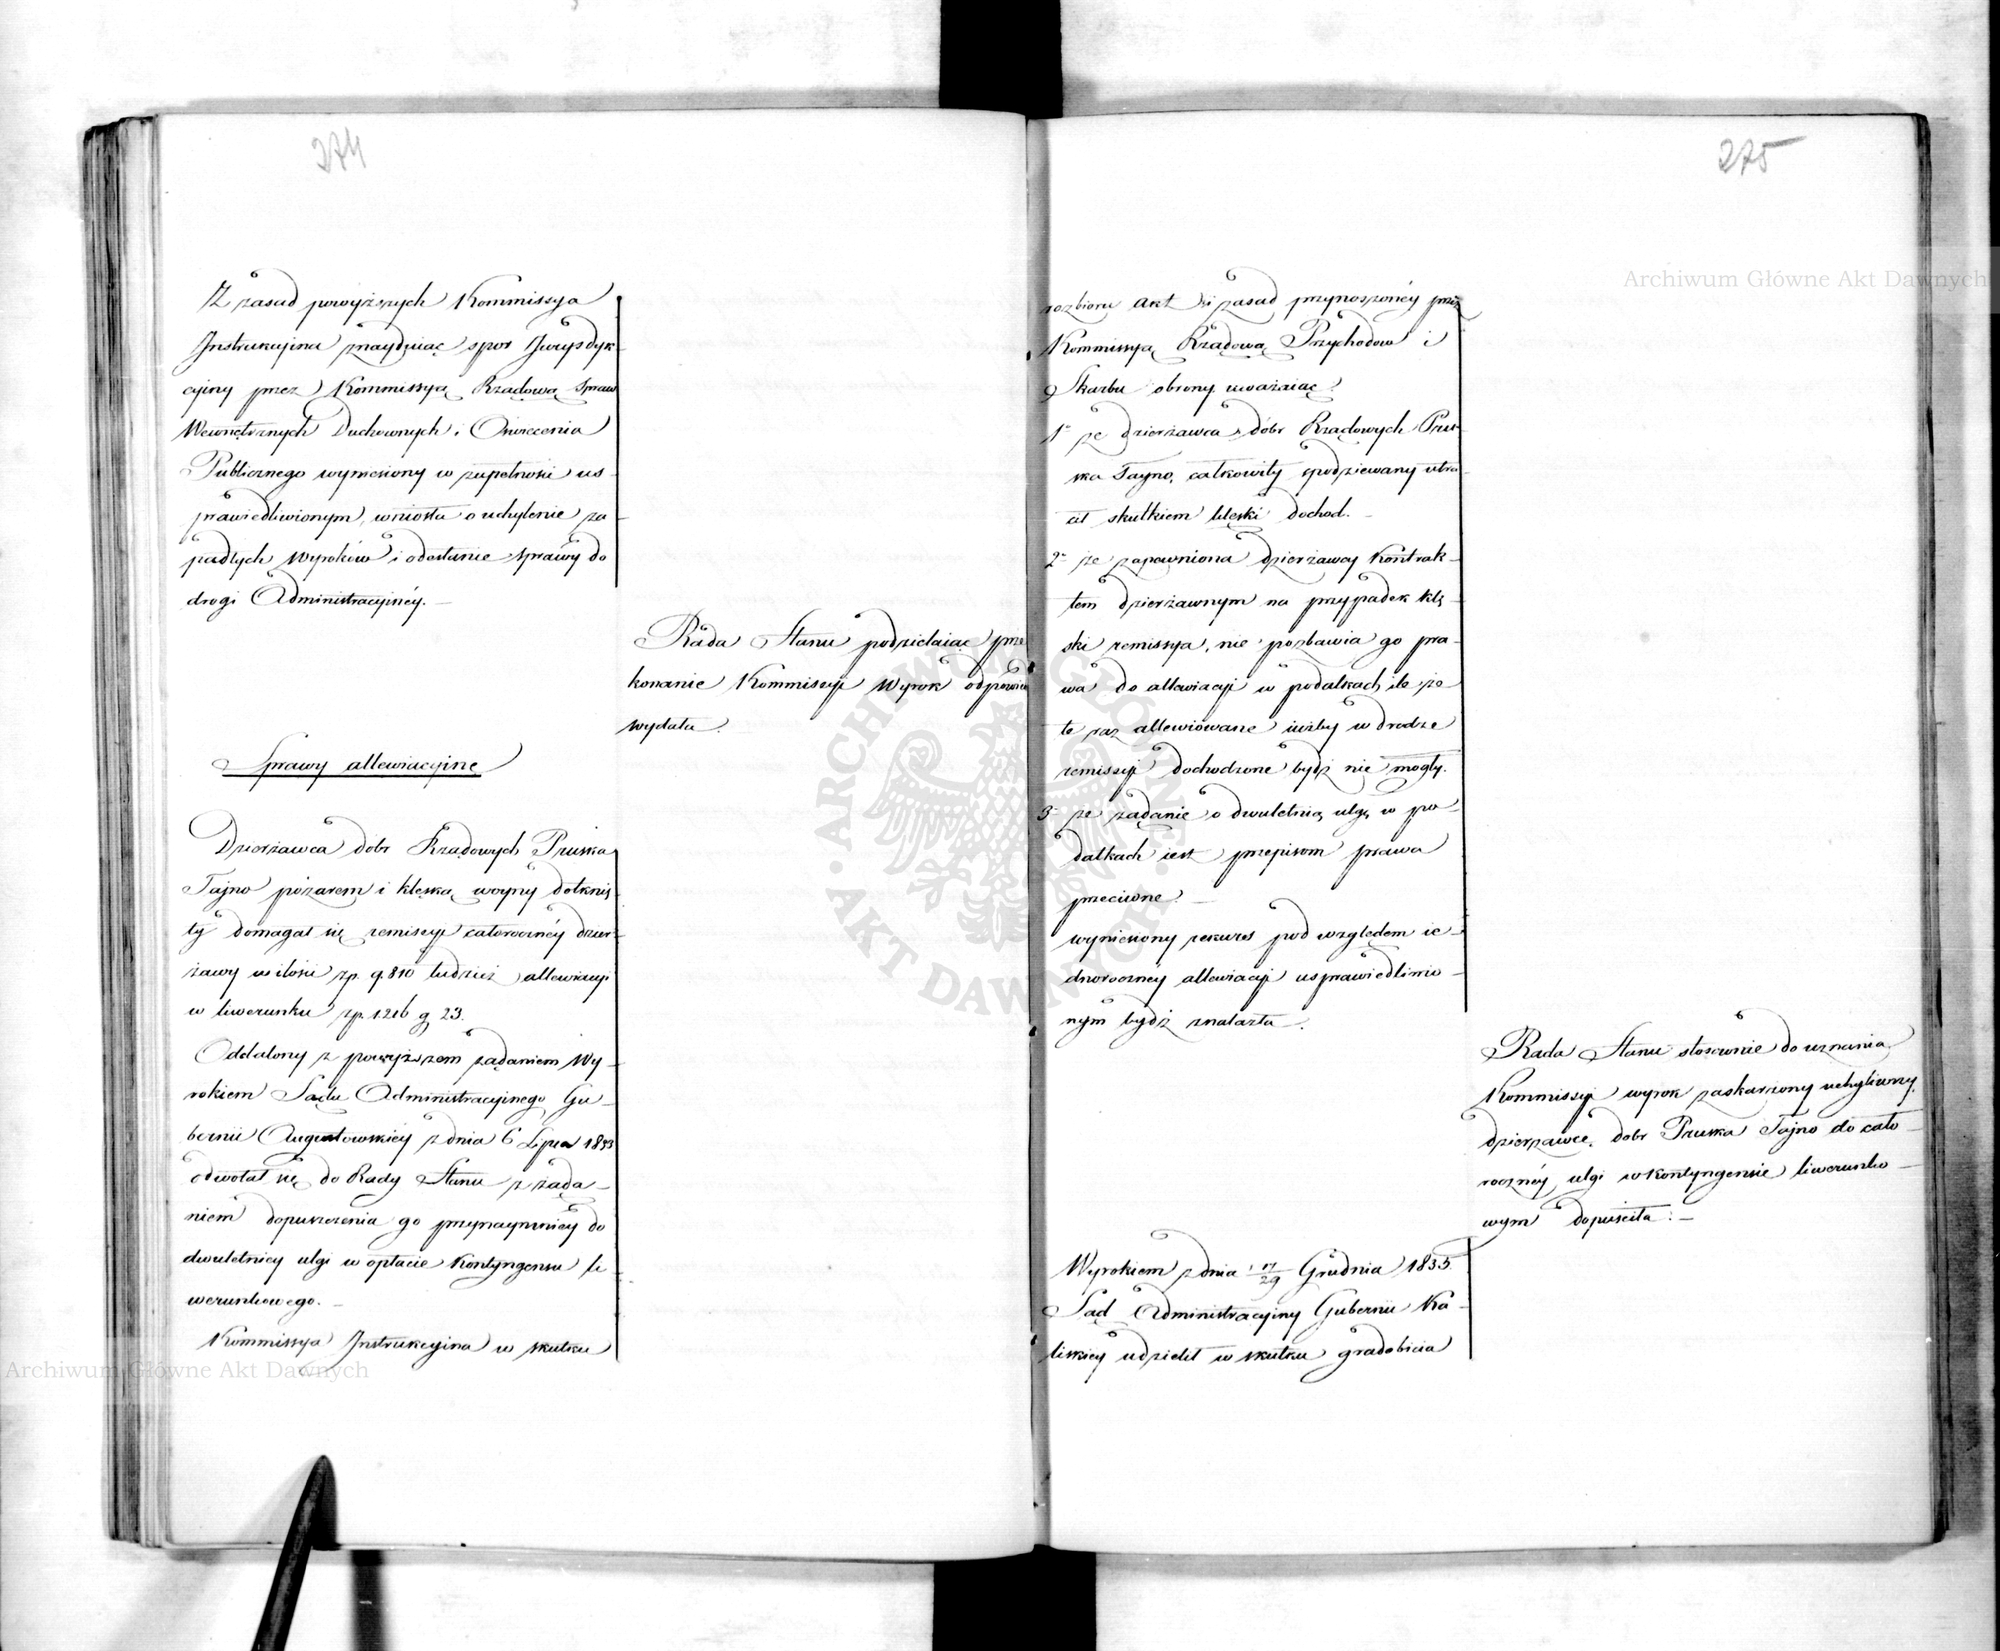 274
Z zasad powyższych Kommissya
Instrukcyjna znayduiąc spor Jurysdyk-
cyiny przez Kommissyą Rządową Spraw
Wewnętrznych Duchownych i Oświecenia
Publicznego wyniesiony w zupełności us-
prawiedliwionym, wniosła o uchylenie za
padłych Wyroków i odesłanie sprawy do
drogi Administracyjnéy. —
Rada Stanu podzielaiąc prze
konanie Kommissyi Wyrok odpowied
wydała.
Sprawy allewiacyjne
Dzierżawca dóbr Rządowych Pruska
Tajno pożarem i klęską woyny dotknię-
ty domagał się remissyi całorocznéy dzier-
żawy w ilości zp. 9.810 tudzież allewiacyi
w liwerunku zp. 1216 g 23.
Oddalony z powyższem żądaniem Wy-
rokiem Sądu Administracyjnego Gu-
bernii Augustowskiey z dnia 6 Lipca 1833
odwołał się do Rady Stanu z żąda-
niem dopuszczenia go przynaymniey do
dwuletniey ulgi w opłacie Kontyngensu li-
werunkowego. —
Kommissya Instrukcyjna w skutku
275
rozbioru akt i zasad przynoszonéy przez
Kommissyą Rządową Przychodow i
Skarbu obrony uważaiąc
1° że dzierżawca dóbr Rządowych Prus-
ska Tayno, całkowity spodziewany utra-
cił skutkiem klęski dochod. —
2° że zapewniona dzierżawcy Kontrak-
tem dzierżawnym na przypadek klę-
ski remissya, nie pozbawia go pra-
wa do allewiacyi w podatkach, ile że
te raz allewiowane iużby w drodze
remissyi dochodzone bydź nie mogły.
3° że żądanie o dwuletnią ulgę w po-
datkach iest przepisom prawa
przeciwne. —
wyniesiony rekurs pod względem ie-
dnorocznéy allewiacyi usprawiedliwio-
nym bydź znalazła —.
Rada Stanu stosownie do uznania
Kommissyi wyrok zaskarżony uchyliwszy,
dzierżawcę dobr Pruska Tajno do cało-
rocznéy ulgi w Kontyngensie liwerunko-
wym dopuściła: —
Wyrokiem z dnia 17/29 Grudnia 1835
Sąd Administracyjny Gubernii Ka-
liskiey udzielił w skutku gradobicia
Archiwum Główne Akt Dawnych
Archiwum Główne Akt Dawnych
ARCHIWUM GŁÓWNE · AKT DAWNYCH ·